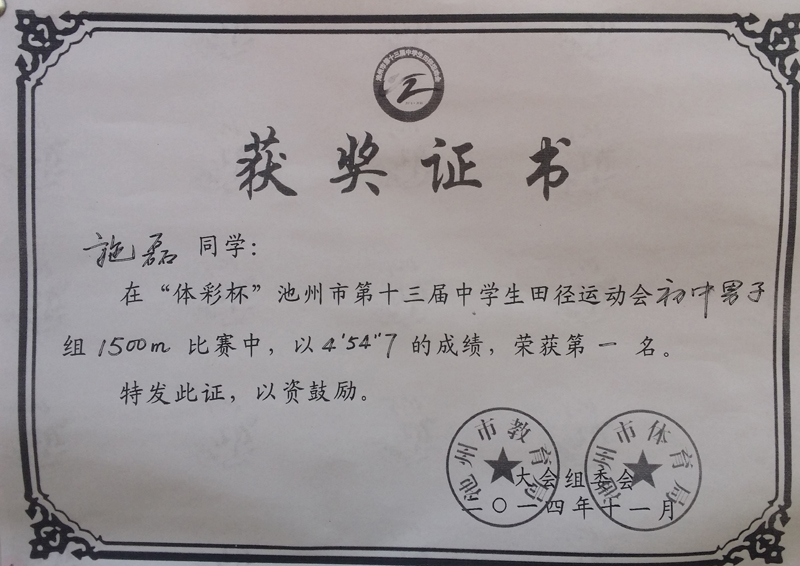 池州市第十三届中学生田径运动会
获奖证书
施磊 同学：
在“体彩杯”池州市第十三届中学生田径运动会初中男子
组1500m 比赛中，以4'54"7 的成绩，荣获第 一 名。
特发此证，以资鼓励。
池州市教育局
池州市体育局
大会组委会
二〇一四年十一月